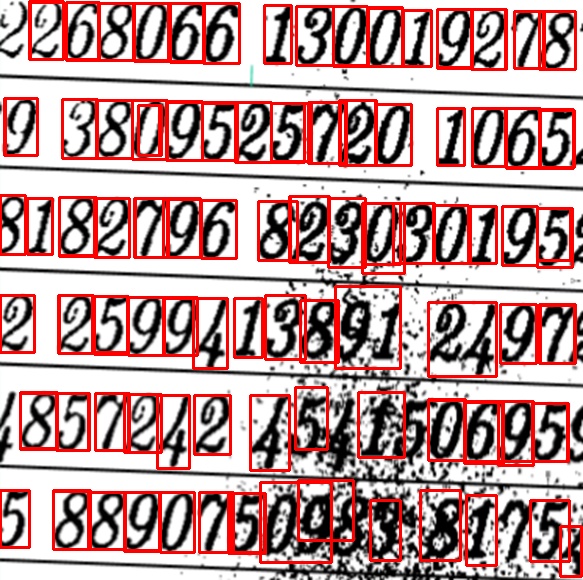 2268066 130019278
9 3809525720 1065
8182796 823030195
2 2599413891 2497
857242 4541506959
5 8890750983 8175